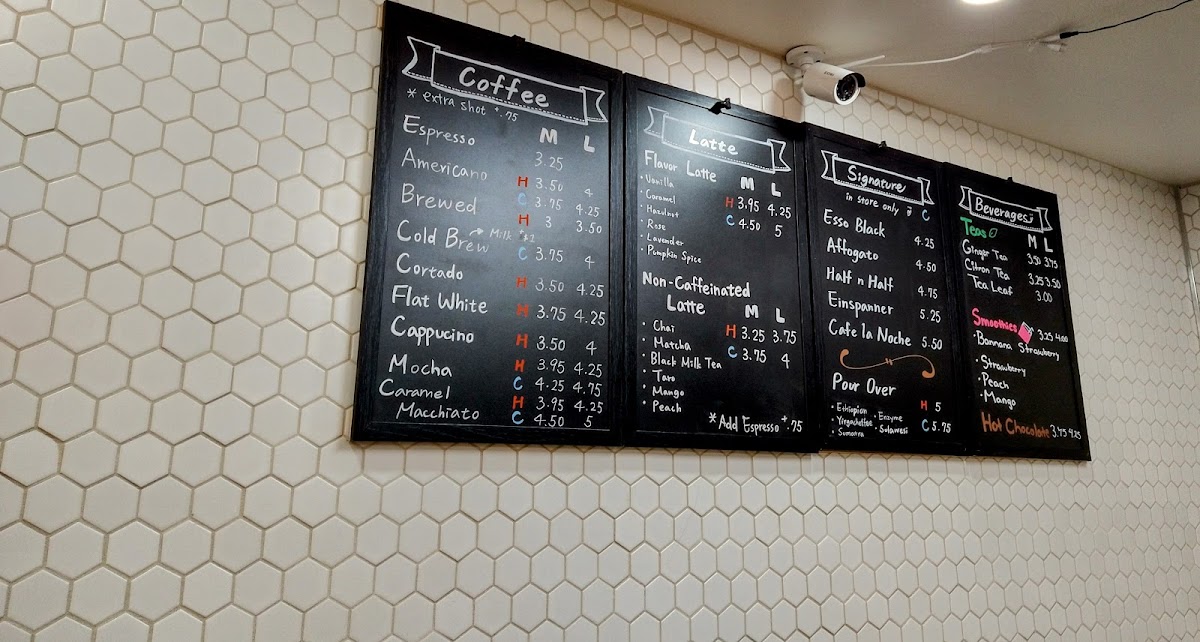 Coffee
* extra shot +.75
M L
Espresso 3.25
Americano H 3.50 4
C 3.75 4.25
Brewed H 3 3.50
Milk +$2
Cold Brew C 3.75 4
Cortado H 3.50 4.25
Flat White H 3.75 4.25
Cappucino H 3.50 4
Mocha H 3.95 4.25
C 4.25 4.75
Caramel H 3.95 4.25
Macchiato C 4.50 5
Latte
Flavor Latte M L
· Vanilla H 3.95 4.25
· Caramel C 4.50 5
· Hazelnut
· Rose
· Lavender
· Pumpkin Spice
Non-Caffeinated
Latte M L
· Chai H 3.25 3.75
· Matcha C 3.75 4
· Black Milk Tea
· Taro
· Mango
· Peach
*Add Espresso +.75
Signature
in store only C
Esso Black 4.25
Affogato 4.50
Half n Half 4.75
Einspanner 5.25
Cafe la Noche 5.50
Pour Over
· Ethiopian · Enzyme H 5
Yirgacheffee · Sulawesi C 5.75
· Sumatra
Beverages
Teas M L
Ginger Tea 3.50 3.75
Citron Tea 3.25 3.50
Tea Leaf 3.00
Smoothies 3.25 4.00
· Bannana Strawberry
· Strawberry
· Peach
· Mango
Hot Chocolate 3.75 4.25